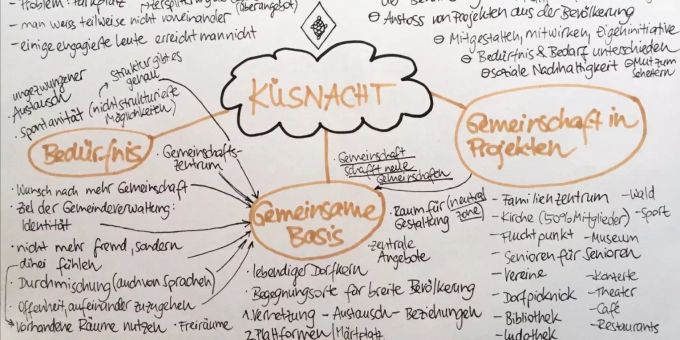 - Problem: Parkplatz
(Überangebot)
- man weiss teilweise nicht voneinander
- einige engagierte Leute erreicht man nicht
Anstoss von Projekten aus der Bevölkerung
Mitgestalten, mitwirken, Eigeninitiative
Bedürfnis & Bedarf unterschieden
soziale Nachhaltigkeit
Mut zum
Scheitern
KÜSNACHT
ungezwungener
Austausch
struktur gibt es
genau
· Spontanität (nicht strukturierte
Möglichkeiten)
Bedürfnis
· Gemeinschafts-
zentrum
· Wunsch nach mehr Gemeinschaft
· Ziel der Gemeindeverwaltung:
Identität
· nicht mehr fremd, sondern
dihei fühlen
· Durchmischung (auch von Sprachen)
Offenheit, aufeinander zuzugehen
vorhandene Räume nutzen · Freiräume
Gemeinsame
Basis
· Gemeinschaft
schafft neue
Gemeinschaften
· Raum für (neutral
Gestaltung zone)
- zentrale
Angebote
· lebendiger Dorfkern
· Begegnungsorte für breite Bevölkerung
1. Vernetzung - Austausch - Beziehungen
2. Plattformen / Märtplatz
Gemeinschaft in
Projekten
- Familienzentrum
- Kirche (50% Mitglieder)
- Fluchtpunkt
- Senioren für Senioren
- Vereine
- Dorfpicknick
- Bibliothek
- Ludothek
- Wald
- Sport
- Museum
- Konzerte
- Theater
- Café
- Restaurants